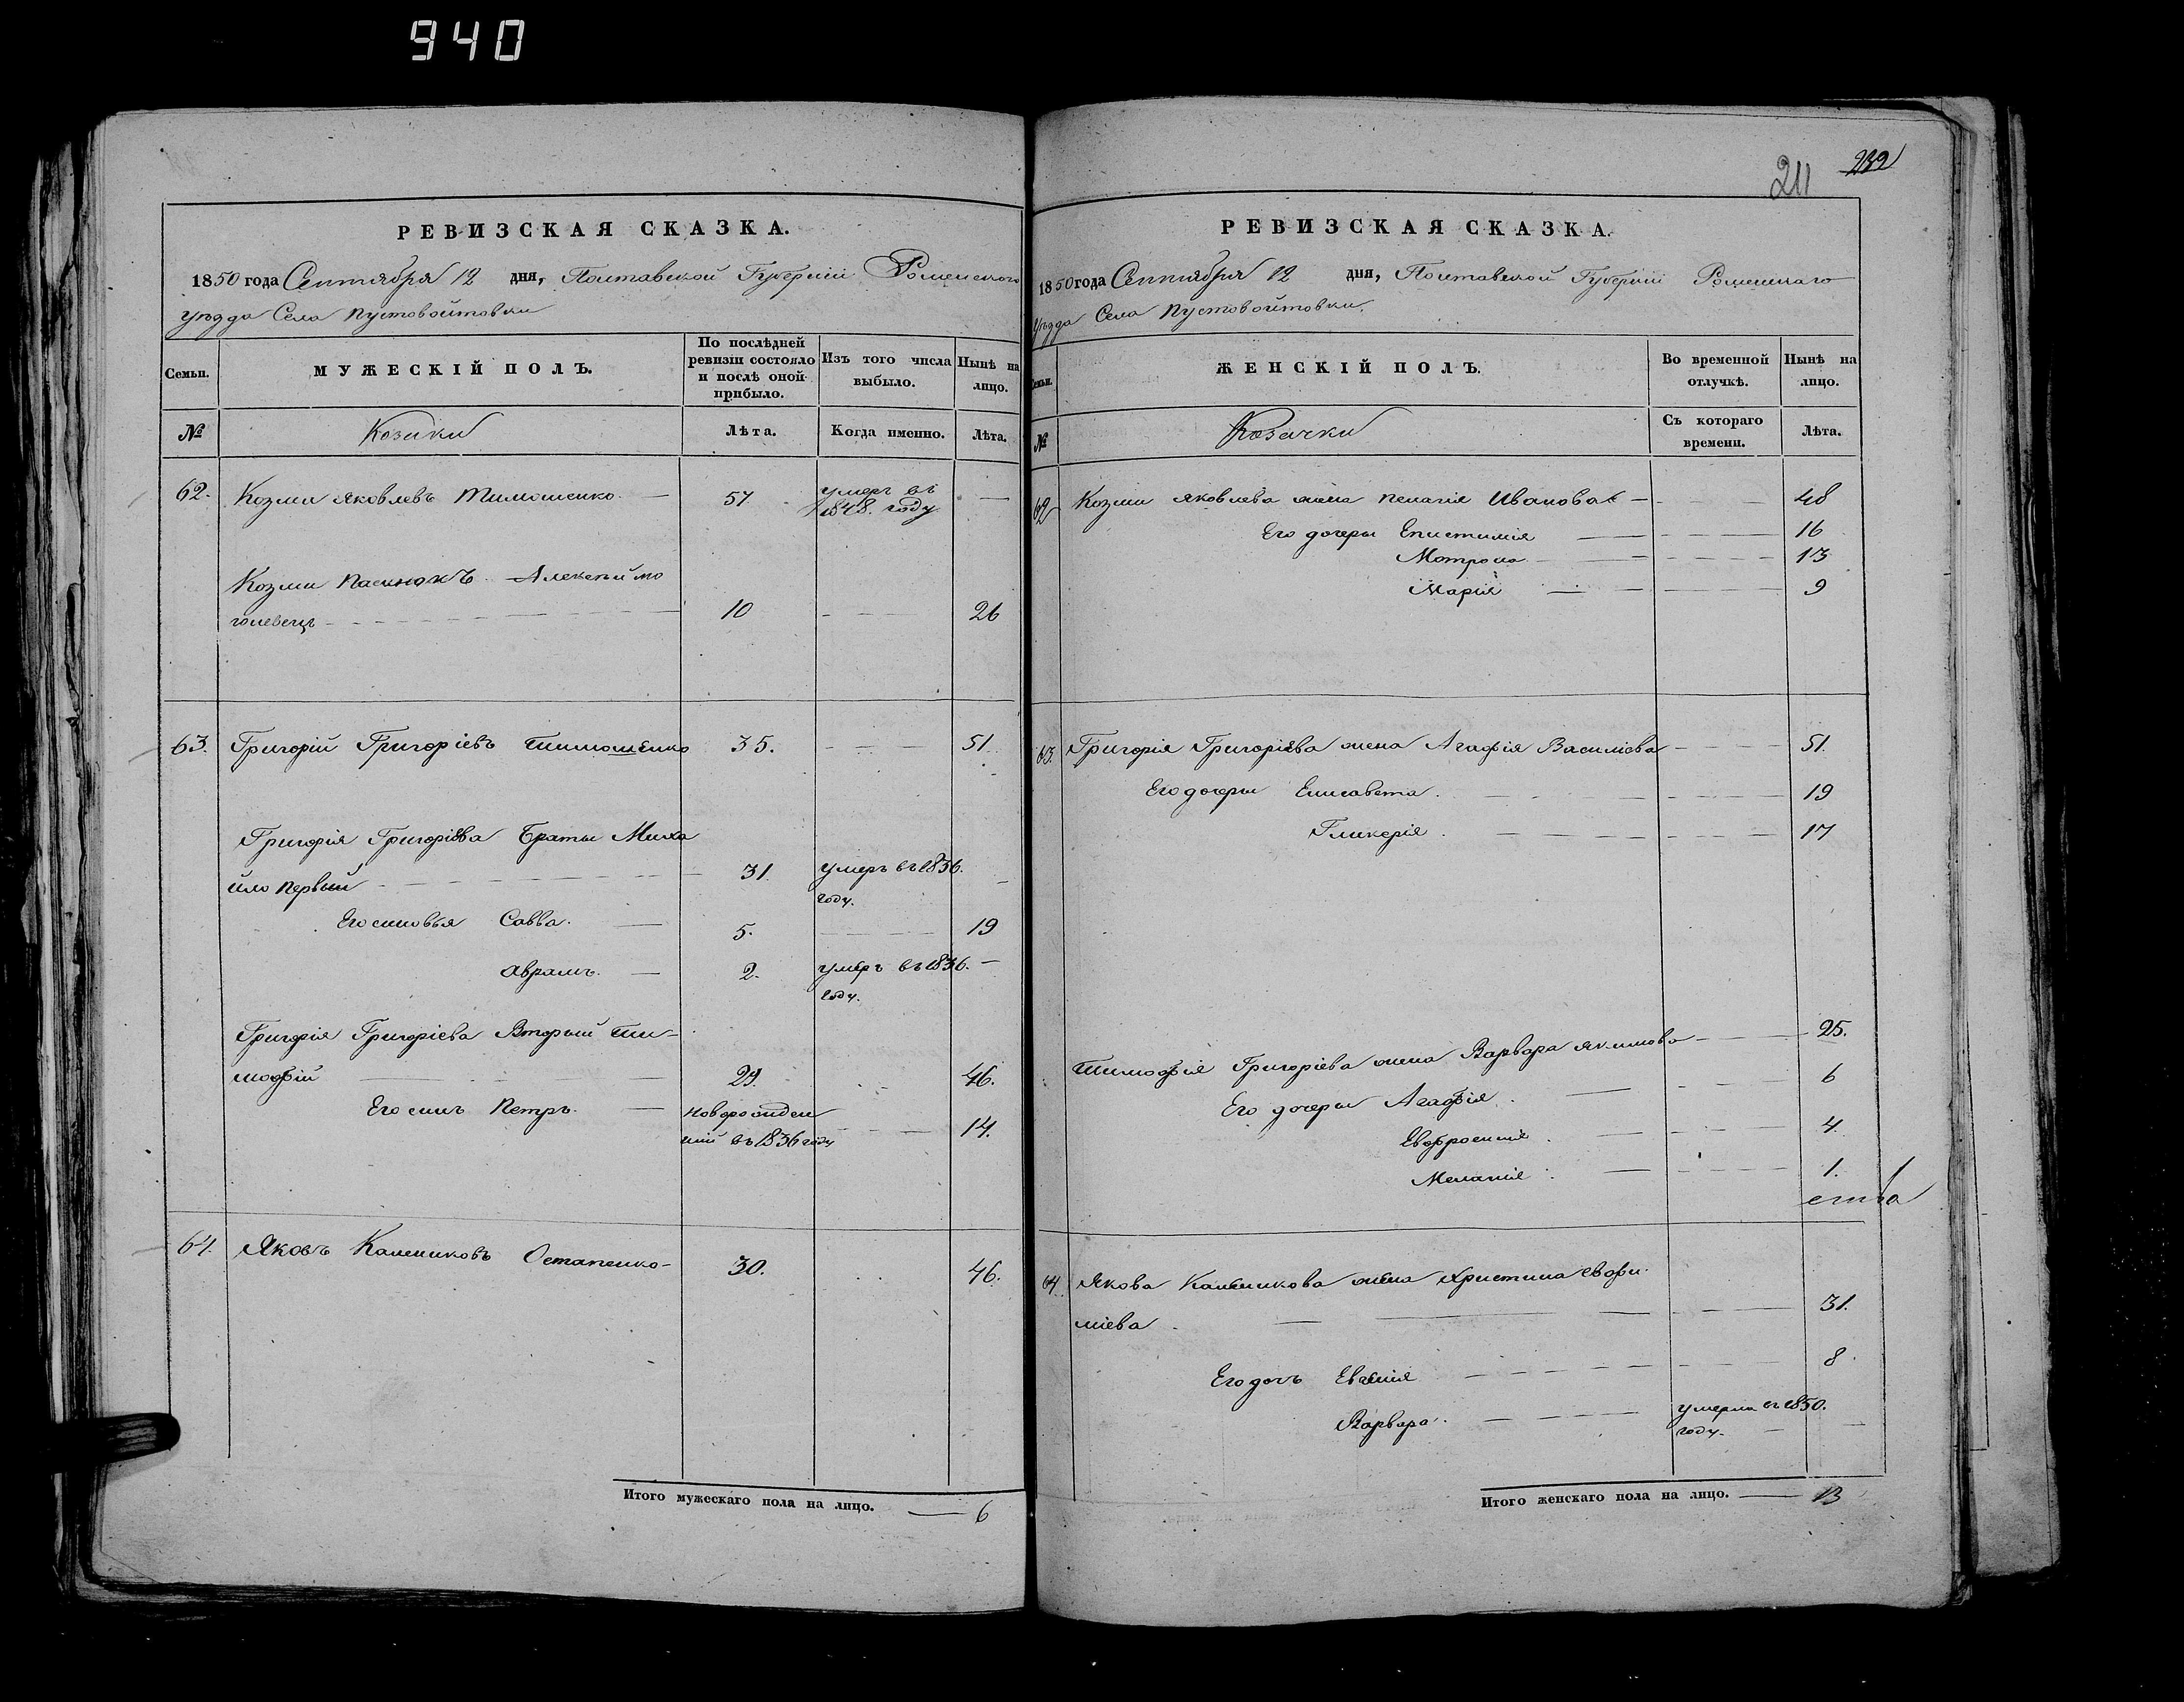 940
211 232
РЕВИЗСКАЯ СКАЗКА.
1850 года Сентября 12 дня, Полтавской Губернии Роменского
уезда Села Пустовойтовки
Семьи.
МУЖЕСКІЙ ПОЛЪ.
По послѣдней ревизіи состояло и послѣ оной прибыло.
Изъ того числа выбыло.
Нынѣ на лицо.
№
Козаки
Лѣта.
Когда именно.
Лѣта.
62. Козма Яковлевъ Тимошенко — 57 умеръ въ 1848. году —
Козмы пасинокъ Алексѣй мо
голевецъ 10 26
63. Григорій Григоріевъ Тимошенко 35. 51.
Григорія Григоріева Браты Миха
йло первый 31. умеръ въ 1836. году. —
Его сыновья Савва. — 5. 19
Аврамъ. — 2. умеръ въ 1836. году. —
Григорія Григоріева Вторый Ти-
мофій 29. 46.
Его сынъ Петръ. — новорожден
ный въ 1836 году 14.
64. Яковъ Калениковъ Остапенко- 30. 46.
Итого мужескаго пола на лицо. — 6
РЕВИЗСКАЯ СКАЗКА.
1850 года Сентября 12 дня, Полтавской Губерніи Роменскаго
уезда Села Пустовойтовки.
Семьи.
ЖЕНСКІЙ ПОЛЪ.
Во временной отлучкѣ.
Нынѣ на лицо.
№
Козачки
Съ котораго времени.
Лѣта.
62 Козмы Яковлева жена Пелагія Иванова — 48
Его дочери Епистимія 16
Мотрона 13
Марія 9
63. Григорія Григоріева жена Агафія Василіева 51.
Его дочери Елисавета. 19
Гликерія. 17
Тимофія Григоріева жена Варвара Якимова 25.
Его дочери Агафія. 6
Евфросинія. 4.
Меланія. 1.
64. Якова Каленикова жена Христина Евфи-
міева. 31.
Его дочь Евгенія 8.
Варвара. умерла въ 1850. году. —
Итого женскаго пола на лицо. — 13